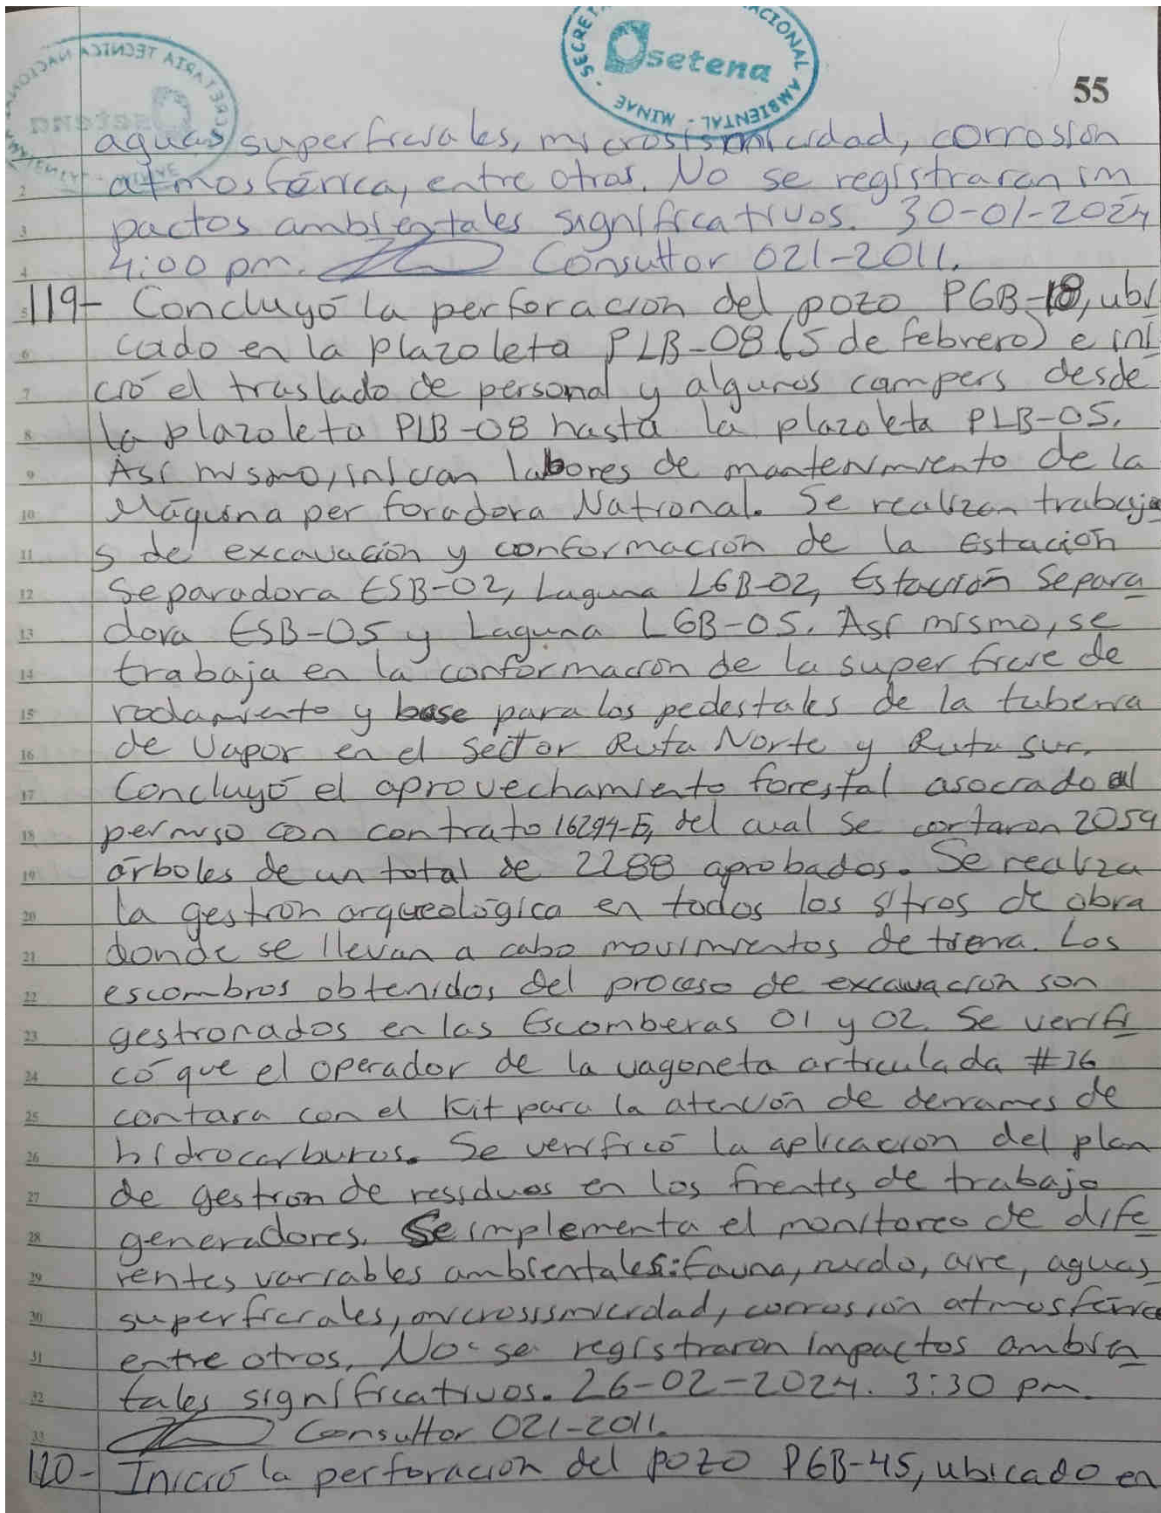 SECRETARIA TECNICA NACIONAL AMBIENTAL - MINAE
setena
55
aguas superficiales, microsismicidad, corrosión
atmosférica, entre otros. No se registraron im
pactos ambientales significativos. 30-01-2024
4:00 pm. Consultor 021-2011.
119- Concluyó la perforación del pozo PGB-18, ubi
cado en la plazoleta PLB-08 (5 de febrero) e ini
ció el traslado de personal y algunos campers desde
la plazoleta PLB-08 hasta la plazoleta PLB-05.
Así mismo, inician labores de mantenimiento de la
Máquina perforadora National. Se realizan trabajo
s de excavación y conformación de la Estación
Separadora ESB-02, Laguna LGB-02, Estación Separa
dora ESB-05 y Laguna LGB-05. Así mismo, se
trabaja en la conformación de la superficie de
rodamiento y base para los pedestales de la tubería
de Vapor en el Sector Ruta Norte y Ruta Sur.
Concluyó el aprovechamiento forestal asociado al
permiso con contrato 16294-E, del cual se cortaron 2059
árboles de un total de 2288 aprobados. Se realiza
la gestión arqueológica en todos los sitios de obra
donde se llevan a cabo movimientos de tierra. Los
escombros obtenidos del proceso de excavación son
gestionados en las Escomberas 01 y 02. Se verifi
có que el operador de la vagoneta articulada #16
contara con el Kit para la atención de derrames de
hidrocarburos. Se verificó la aplicación del plan
de gestión de residuos en los frentes de trabajo
generadores. Se implementa el monitoreo de dife
rentes variables ambientales: fauna, ruido, aire, aguas
superficiales, microsismicidad, corrosión atmosférica
entre otros. No se registraron impactos ambien
tales significativos. 26-02-2024. 3:30 pm.
Consultor 021-2011.
120- Inició la perforación del pozo PGB-45, ubicado en